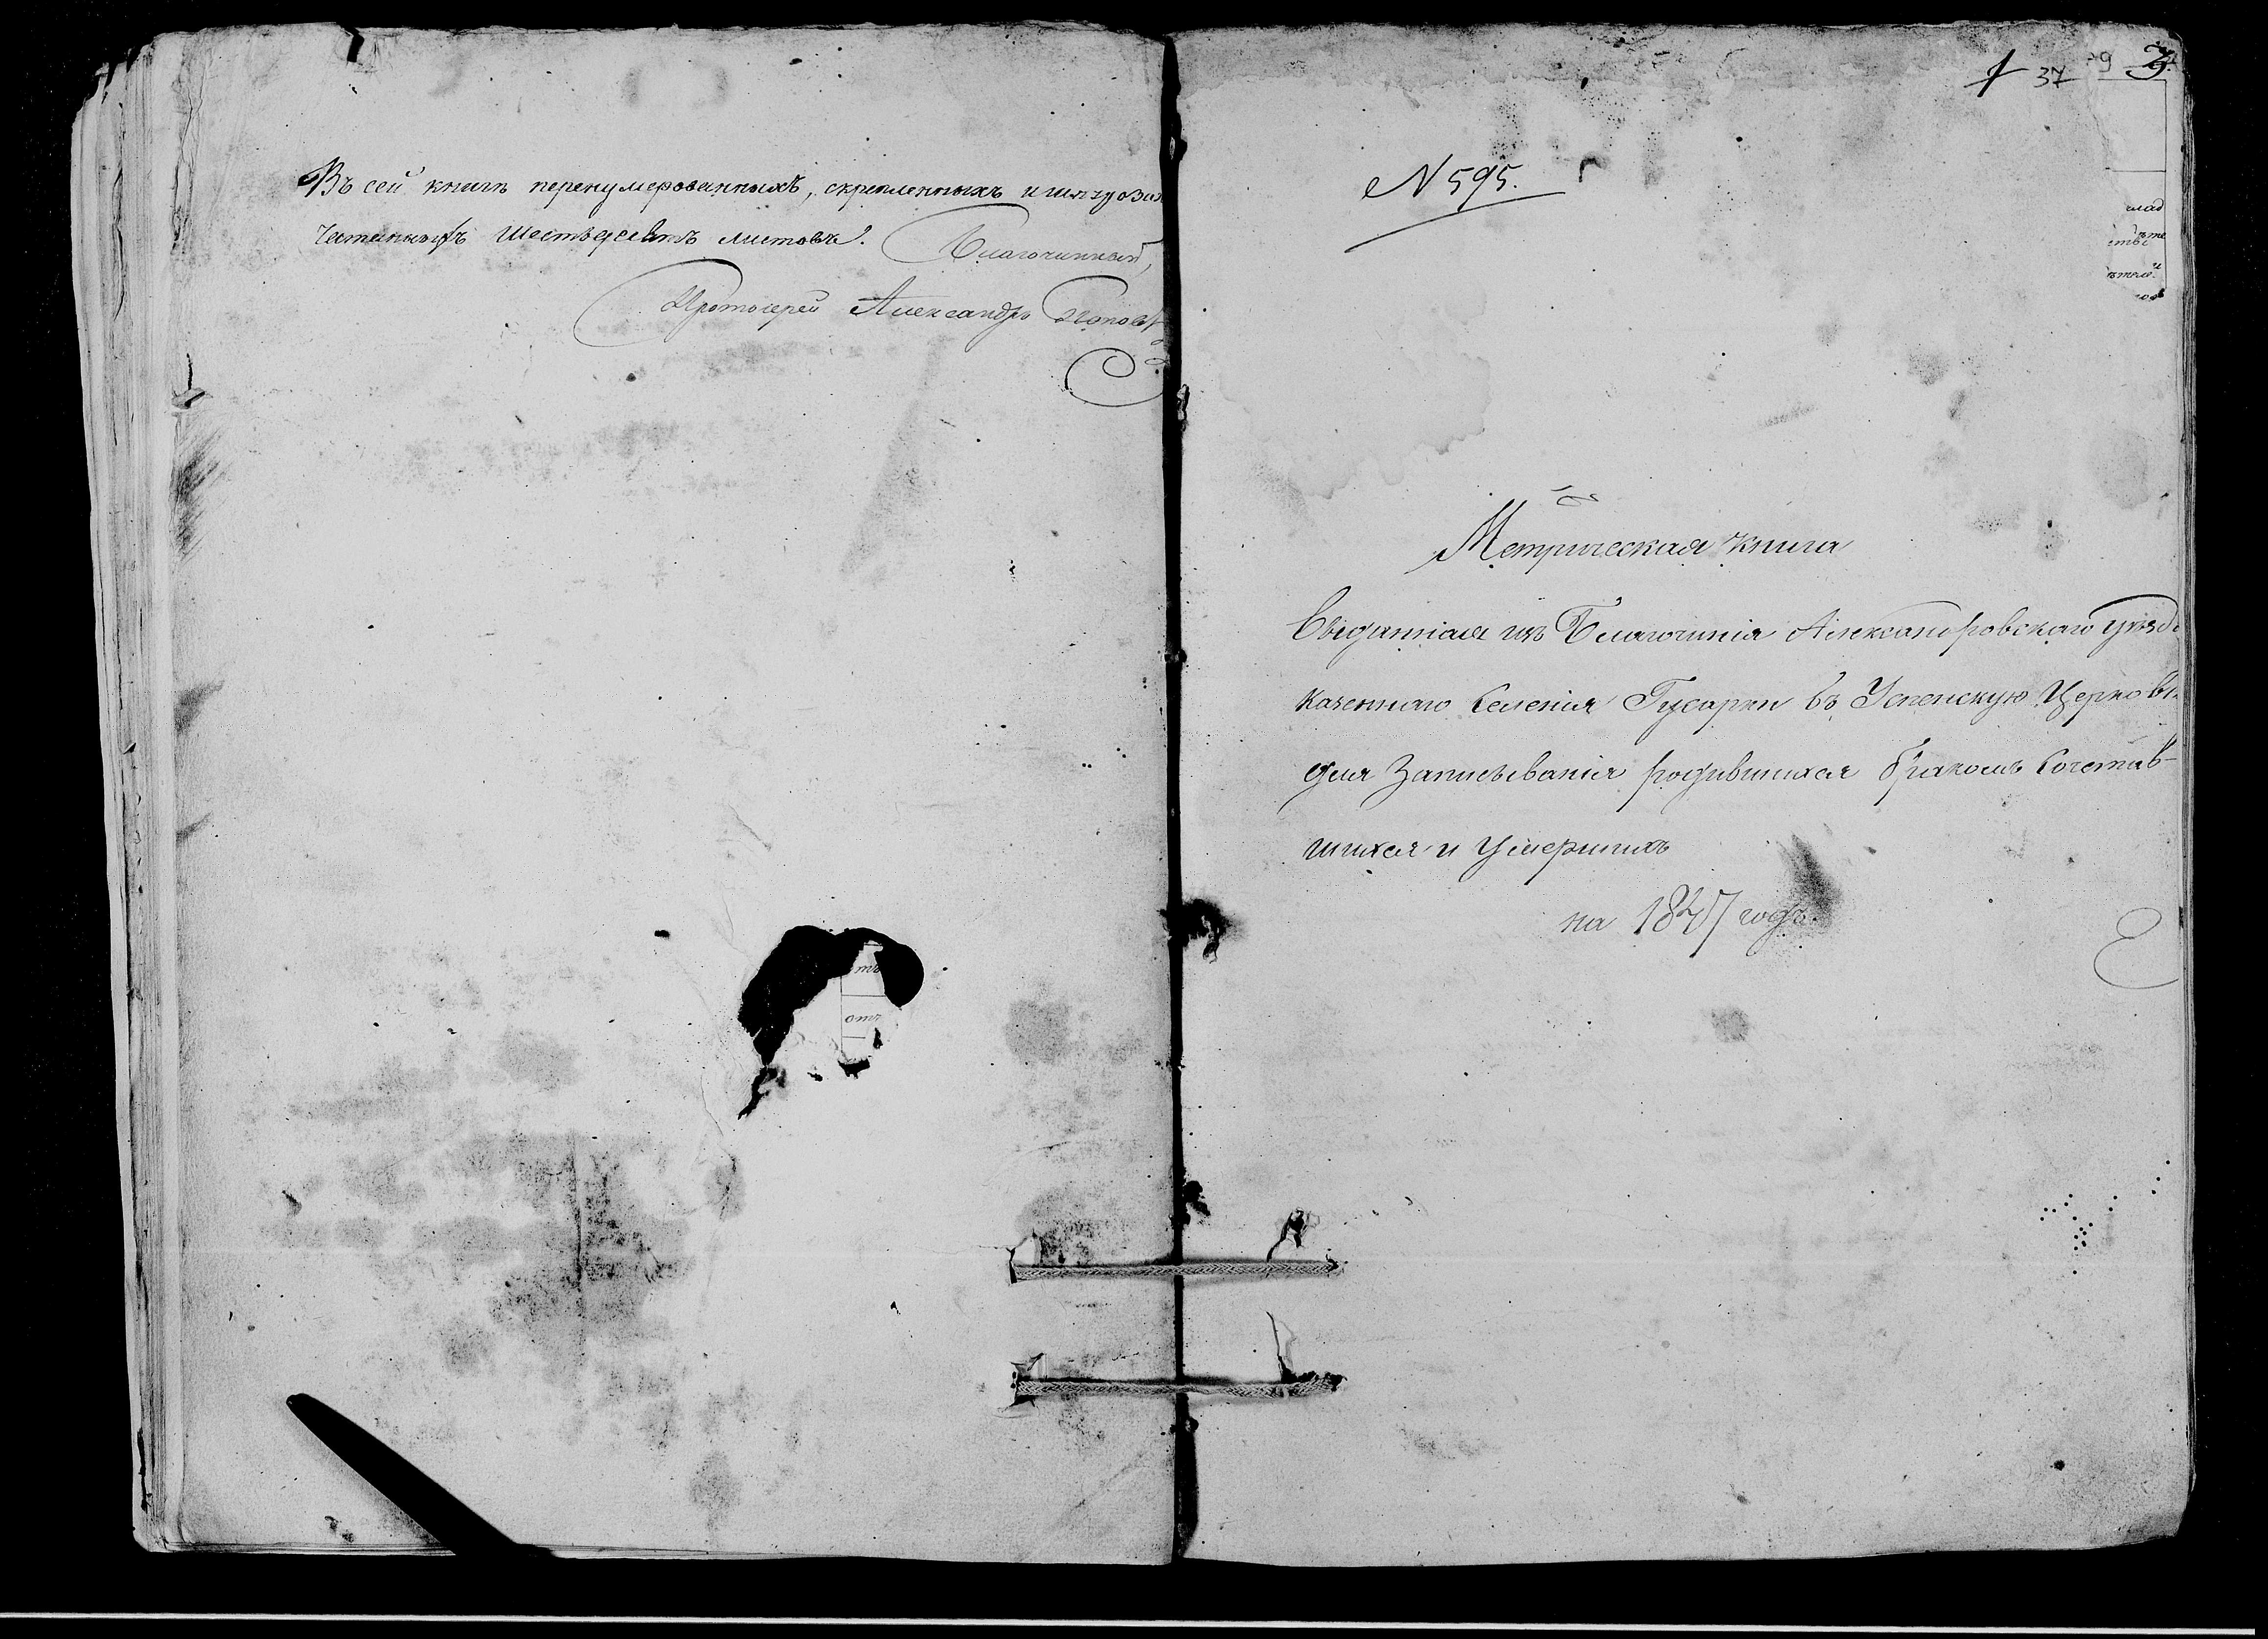 Въ сей книгѣ перенумерованныхъ, скрепленныхъ и шнуроза
чатанныхъ шестьдесятъ листовъ. Благочинный,
Протоіерей Александръ Поповъ
1 37 9
N 595.
Метрическая книга
Выданная изъ Благочинія Александровскаго уѣзда
казеннаго селенія Гусарки въ Успенскую Церковь
для записыванія родившихся бракомъ сочетав-
шихся и умершихъ
на 1847 годъ.
отъ